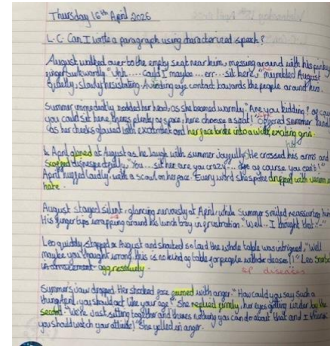 Thursday 16th April 2026
L.C. Can I write a paragraph using characterised speech?
August walked over to the empty seat near him, messing around with his
"Uh..... Could I maybe... err... sit here," mumbled August
quietly, slowly hesitating. Avoiding eye contact towards the people around him.
Summer immediately nodded her head, as she beamed warmly. "Are you kidding? Of
you could sit here theres plenty of space, here choose a seat!"
as her cheeks glowed with excitement and her face broke into a wide, exciting grin.
April at August as he laugh with summer joyfully. She crossed his arms and
disrespectfully. "You... sit here are you crazy... like as cause you can't!"
April laughed loudly, with a scowl on her face. Every word she spoke dripped with venom
hate.
August stayed silent, glancing nervously at April while Summer smiled
His fingertips wrapping around his lunch tray in frustration. "Well... I thought that..."
Leo quickly stopped August and shouted so loud the whole table was intrigued. "Well
maybe you thought wrong, this is no kind of table for people with diseases!" Leo
aggressively.
sp diseases
Summer's jaw dropped. Her shocked face with anger. "How could you say such a
thing April, you should act like your age". She replied firmly, her eyes getting by the
second. "We're just sitting together and theres nothing you can do about that and I
you should watch your attitude!" She yelled in anger.